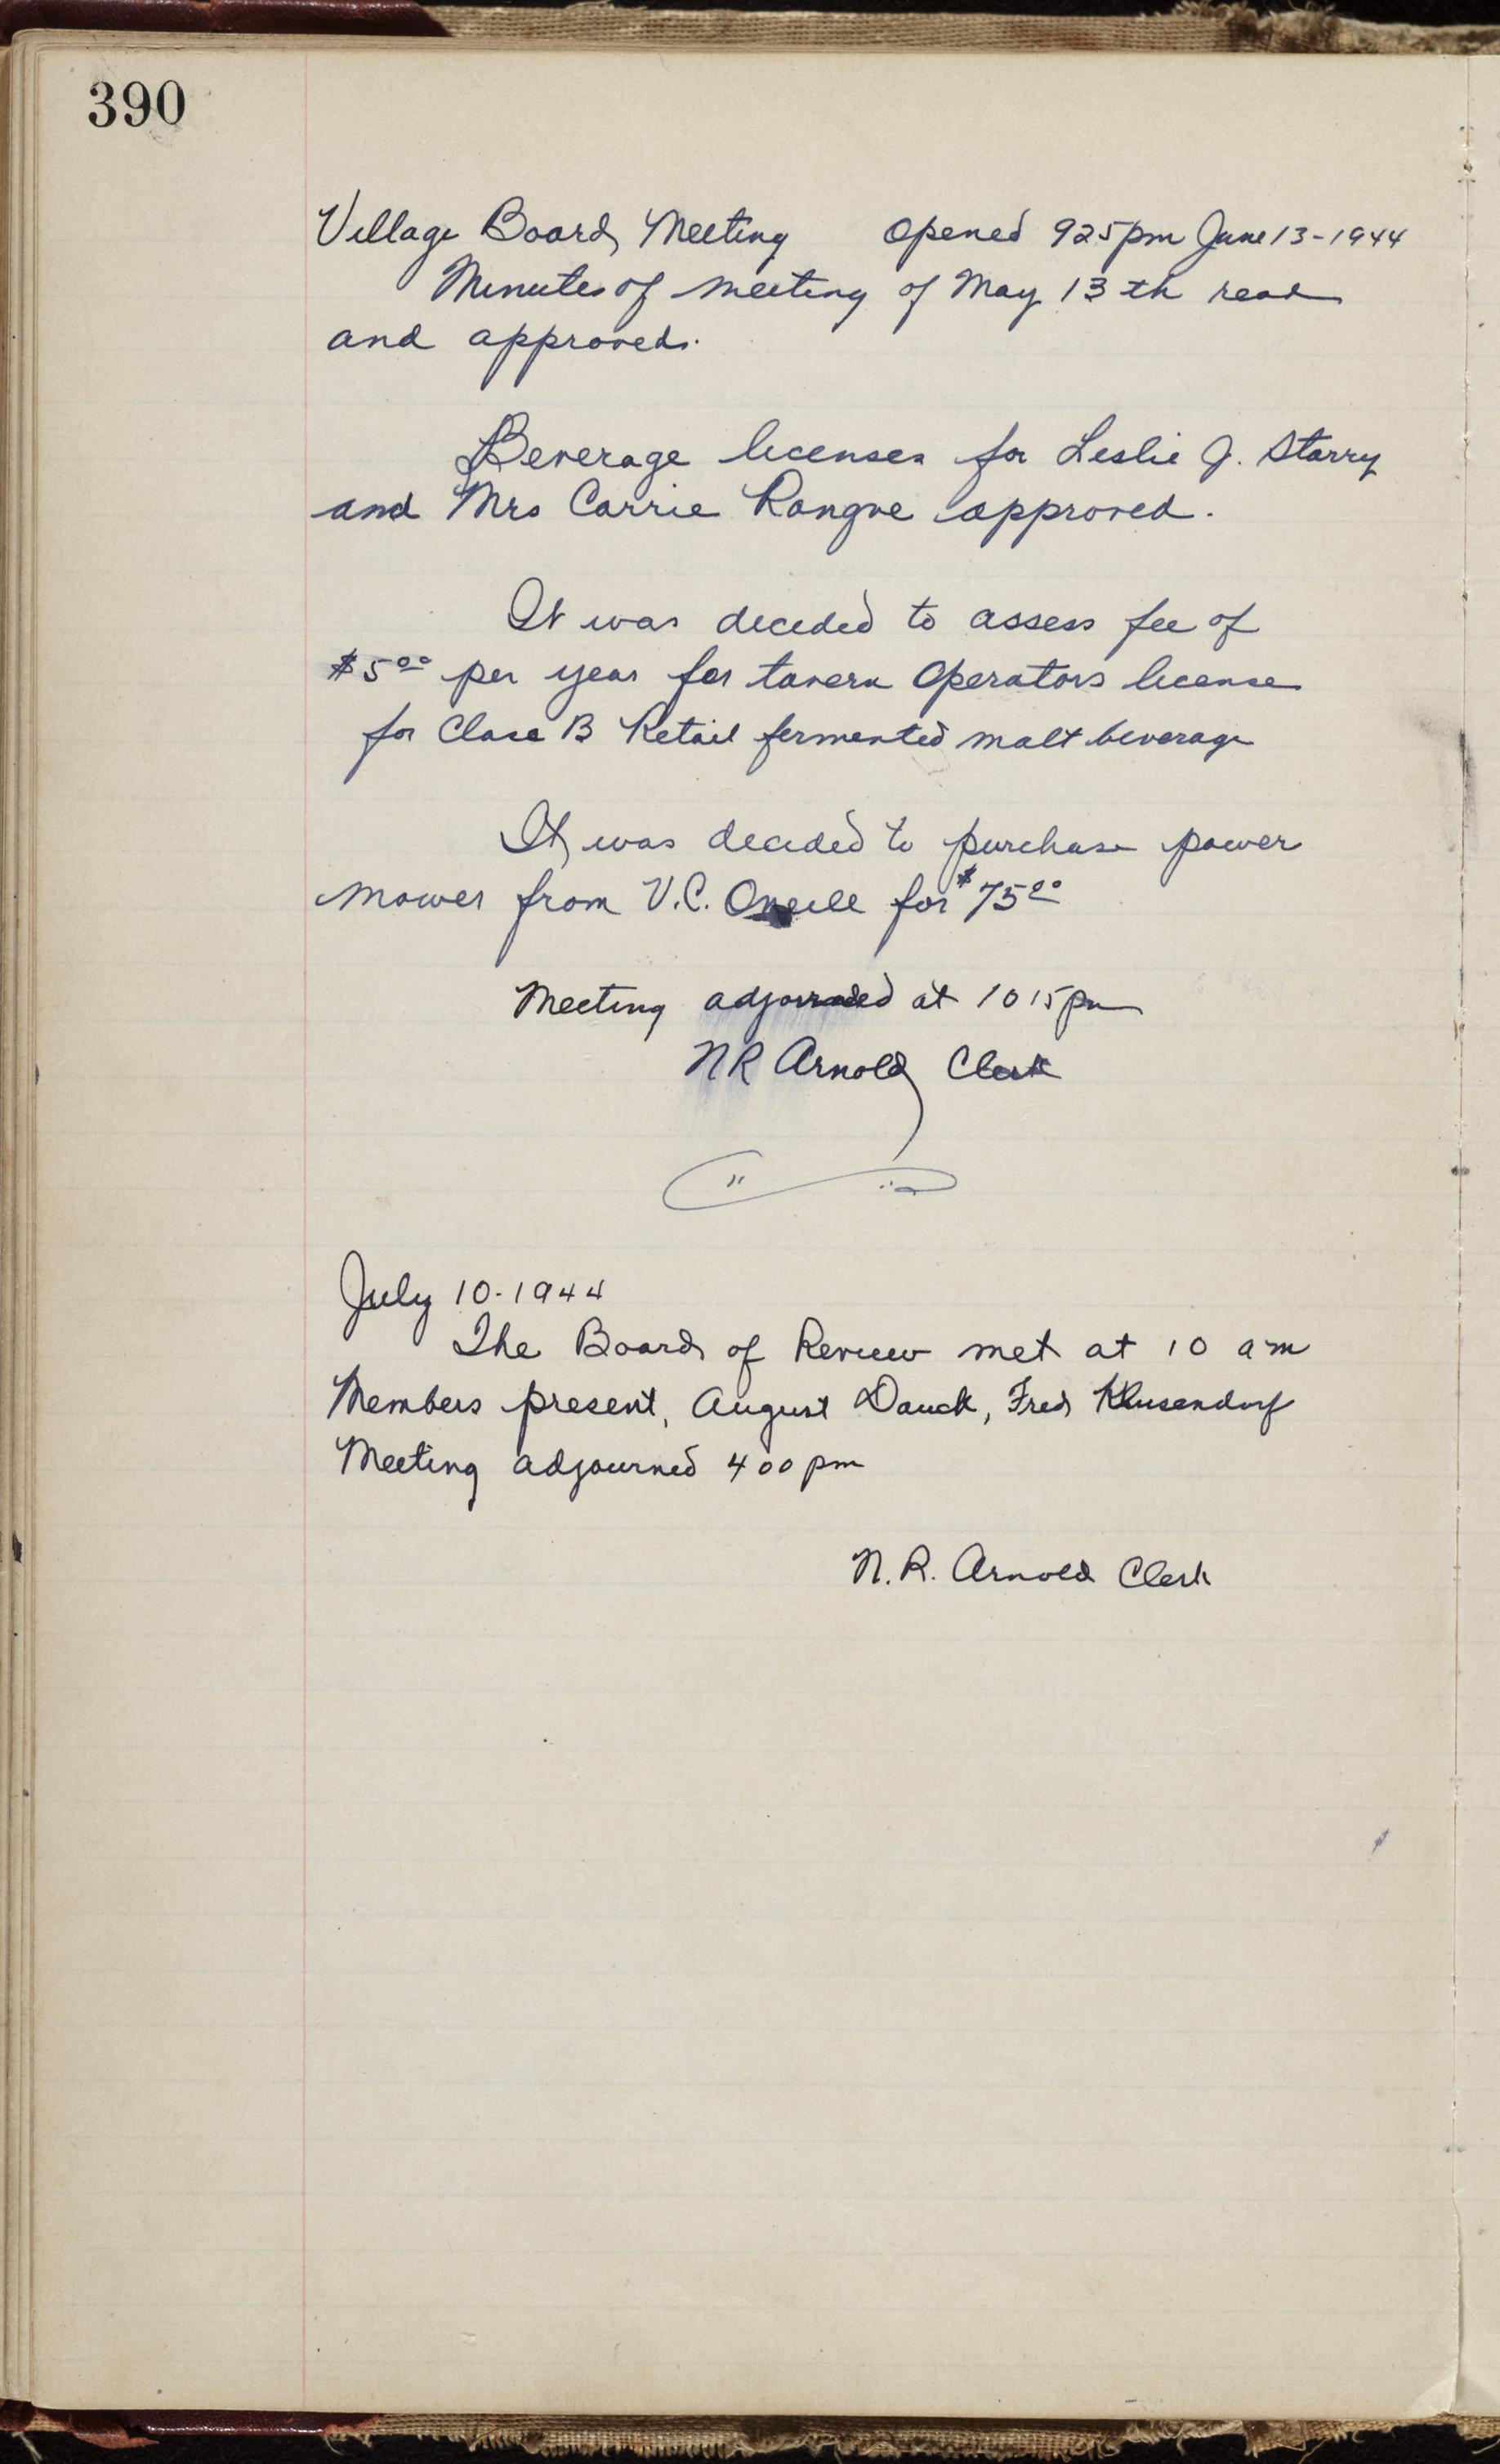 390
Village Board Meeting opened 925pm June 13-1944
Minutes of meeting of May 13th read
and approved.
Beverage licenses for Leslie J. Starry
and Mrs Carrie Rongve approved.
It was decided to assess fee of
$5.00 per year for tavern Operators license
for Class B Retail fermented malt beverage
It was decided to purchase power
mower from V.C. Oneill for $75.00
Meeting adjourned at 1015pm
NR Arnold Clerk
July 10-1944
The Board of Review met at 10 am
Members present, August Dauck, Fred Klusendorf
Meeting adjourned 400pm
N.R. Arnold Clerk